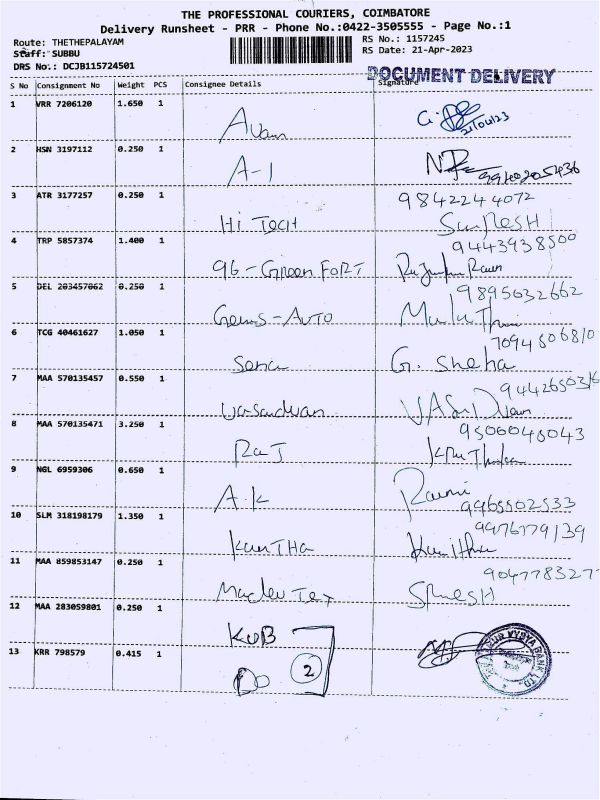 THE PROFESSIONAL COURIERS, COIMBATORE
Delivery Runsheet - PRR - Phone No.:0422-3505555 - Page No.:1
Route: THETHEPALAYAM
RS No.: 1157245
Staff: SUBBU
RS Date: 21-Apr-2023
DRS No.: DCJB115724501
DOCUMENT DELIVERY
S No Consignment No Weight PCS Consignee Details Signature
1 VRR 7206120 1.650 1 21/04/23
2 HSN 3197112 0.250 1 A-1
3 ATR 3177257 0.250 1 Hi TECH 9842244072
4 TRP 5857374 1.400 1 96-Green FORT 9443938500
5 DEL 203457062 0.250 1 Gems-AUTO 9895632662
6 TCG 40461627 1.050 1 G. Sneha 7094506810
7 MAA 570135457 0.550 1
8 MAA 570135471 3.250 1 RaJ 9500040043
9 NGL 6959306 0.650 1 A.K 9965502533
10 SLM 318198179 1.350 1 9976779139
11 MAA 859853147 0.250 1 904778327
12 MAA 283059801 0.250 1 KUB
13 KRR 798579 0.415 1 Do 2